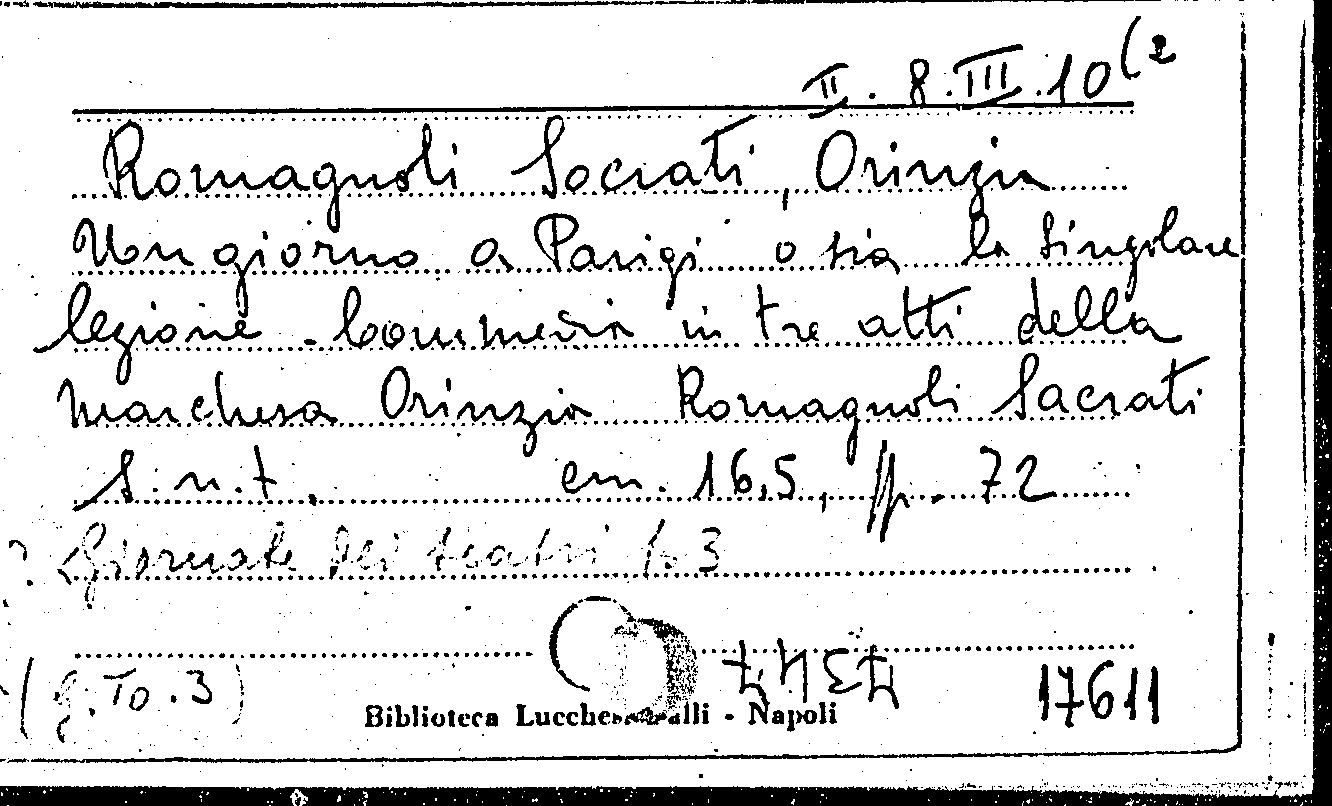 II. 8. III. 10 (2
Romagnoli Socrati, Orinzia
Un giorno a Parigi o sia la singolare
lezione - Commedia in tre atti della
marchesa Orinzia Romagnoli Sacrati
s.n.t. cm. 16,5, pp. 72
? Giornale dei teatri to 3
(g. To. 3)
Biblioteca Lucchesi Palli - Napoli
17611